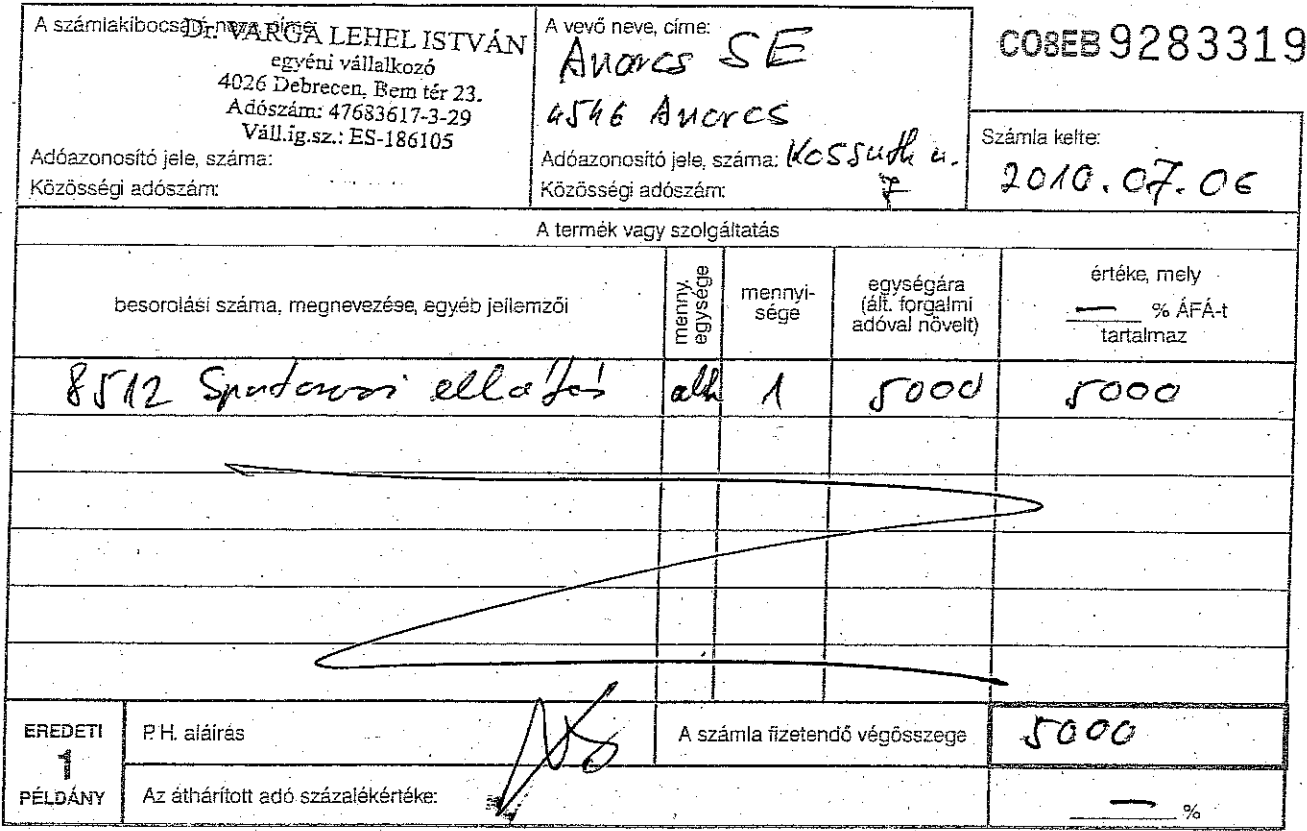 A számlakibocsátó neve, címe:
Dr. VARGA LEHEL ISTVÁN
egyéni vállalkozó
4026 Debrecen, Bem tér 23.
Adószám: 47683617-3-29
Váll.ig.sz.: ES-186105
Adóazonosító jele, száma:
Közösségi adószám:
A vevő neve, címe:
Anarcs SE
4546 Anarcs
Adóazonosító jele, száma: Kossuth u.
Közösségi adószám: 7
CO8EB 9283319
Számla kelte:
2010.07.06
A termék vagy szolgáltatás
besorolási száma, megnevezése, egyéb jellemzői
menny. egysége
mennyi-
sége
egységára
(ált. forgalmi
adóval növelt)
értéke, mely
— % ÁFÁ-t
tartalmaz
8512 Sportorvosi ellátás alk 1 5000 5000
EREDETI
1
PÉLDÁNY
P.H. aláírás
A számla fizetendő végösszege 5000
Az áthárított adó százalékértéke: — %